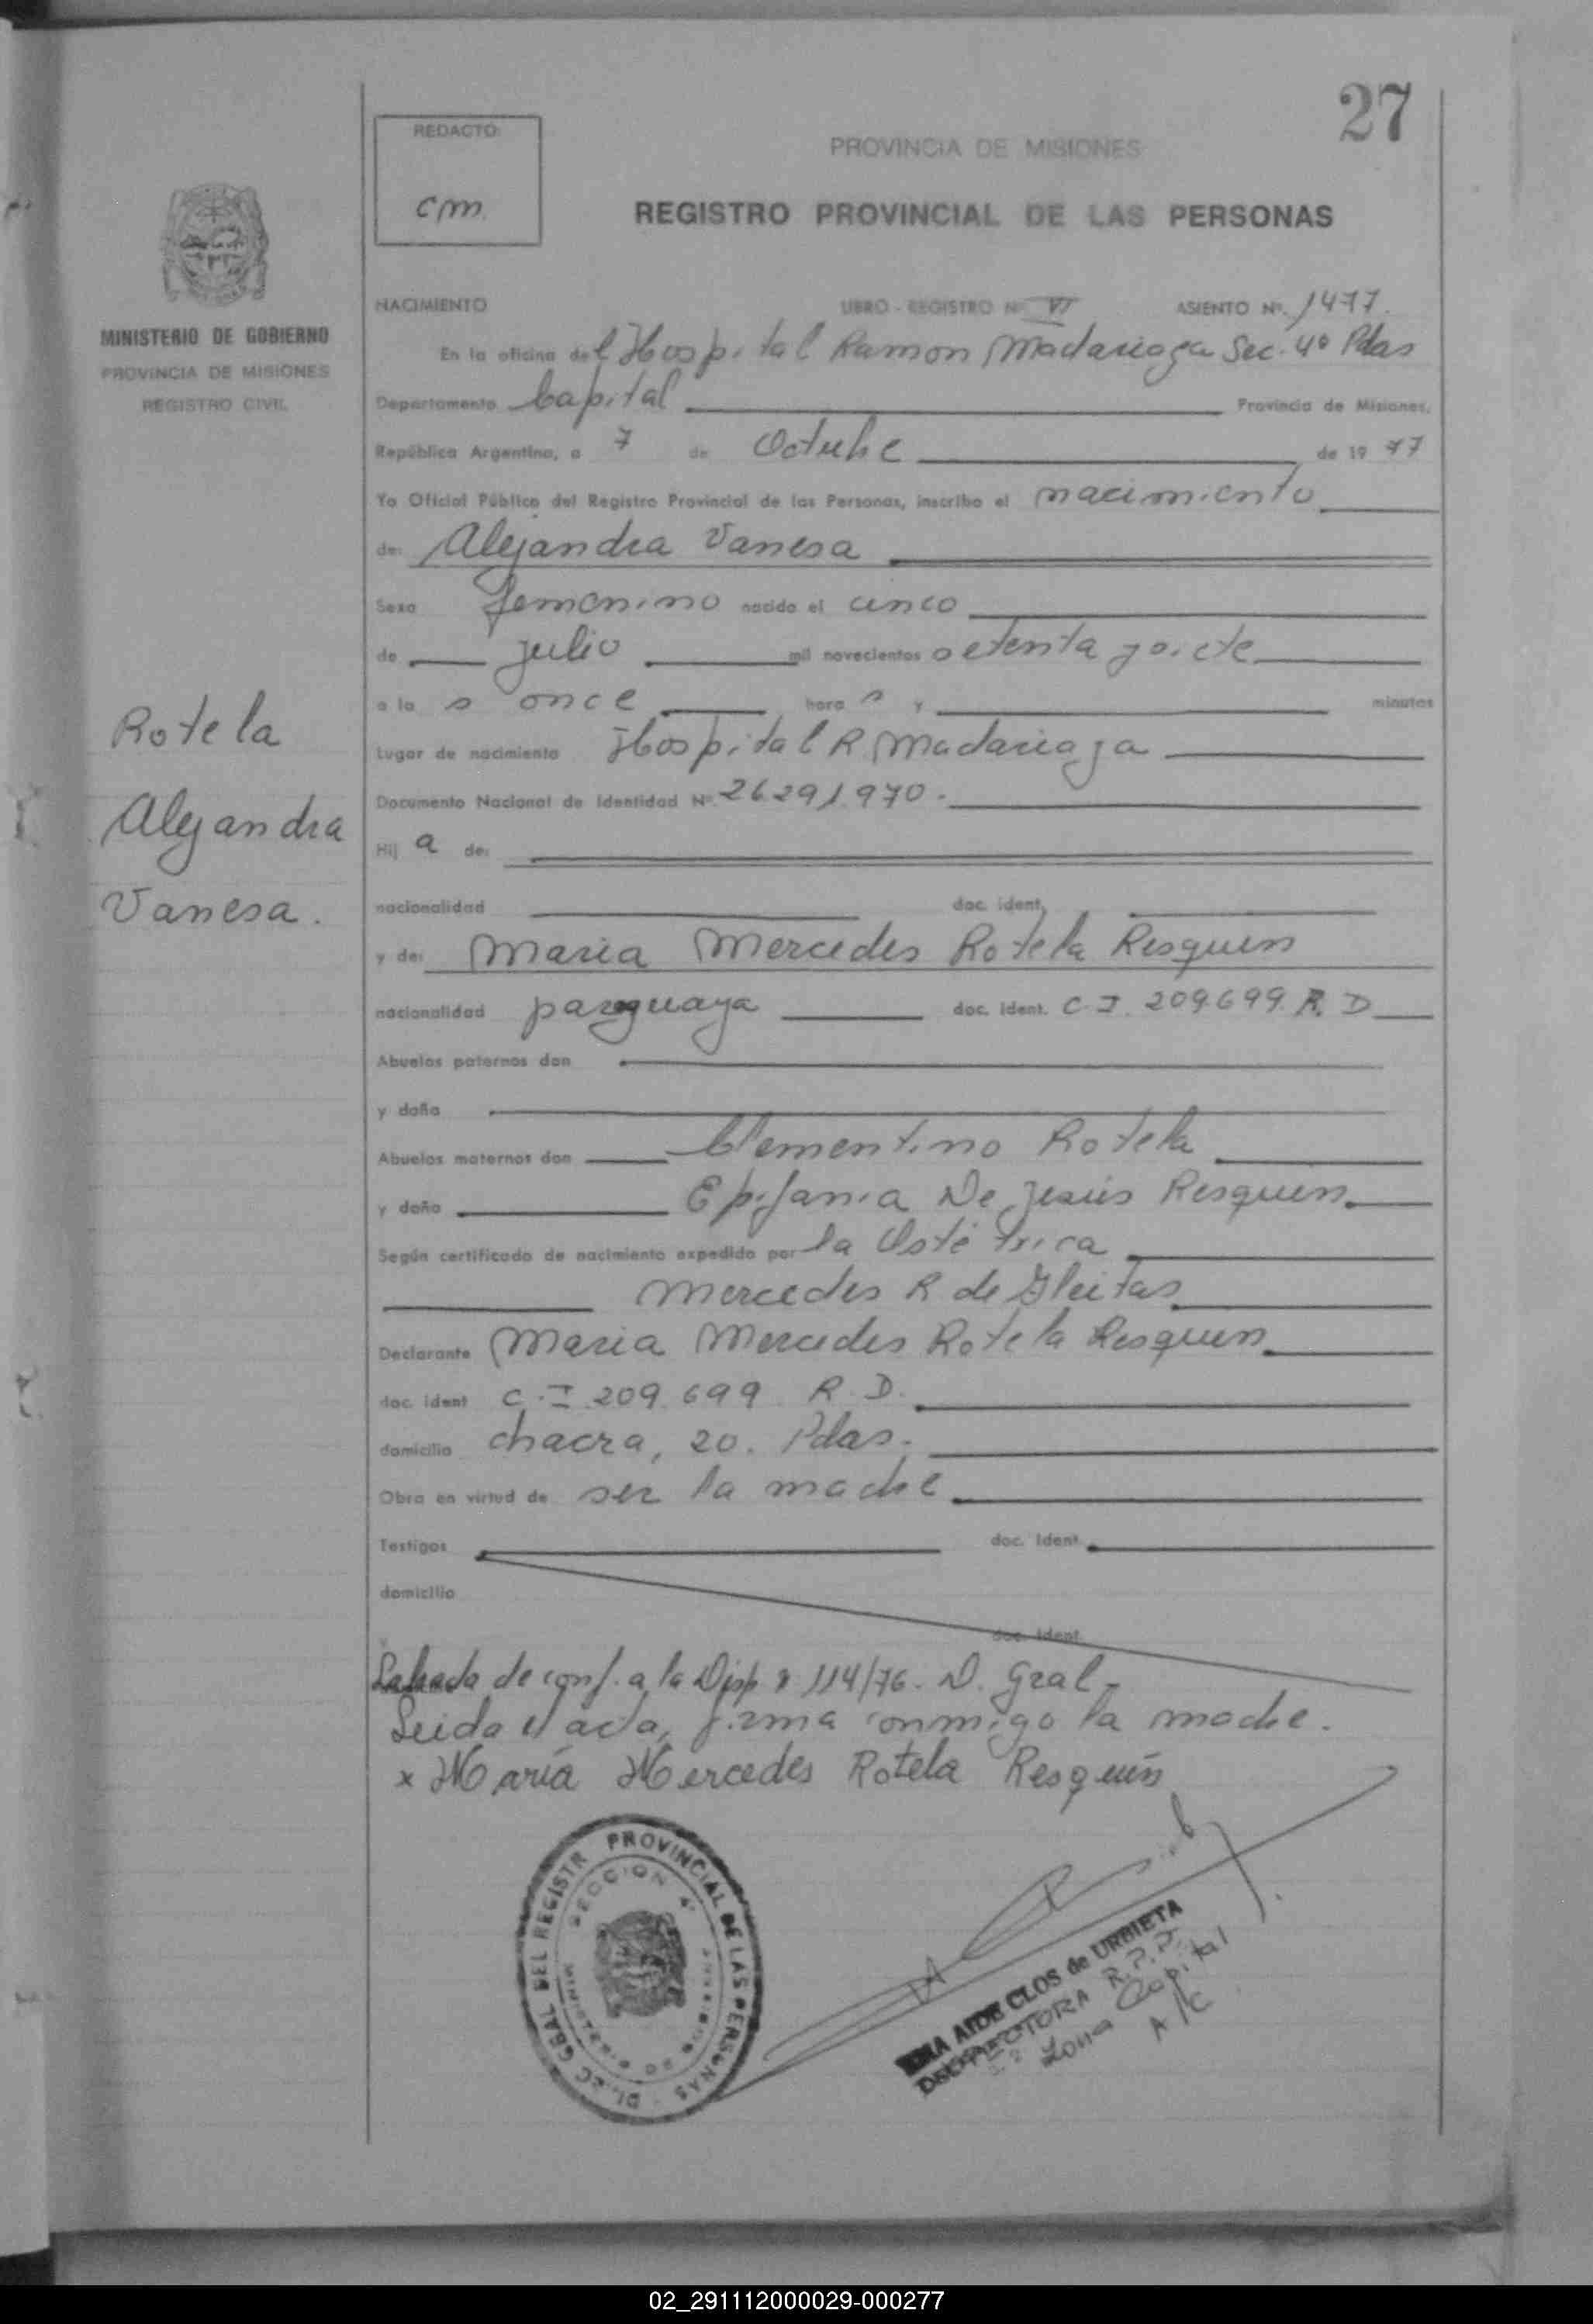 27
REDACTO:
cm.
PROVINCIA DE MISIONES
REGISTRO PROVINCIAL DE LAS PERSONAS
MINISTERIO DE GOBIERNO
PROVINCIA DE MISIONES
REGISTRO CIVIL
NACIMIENTO LIBRO - REGISTRO Nº VI ASIENTO Nº. 1477.
En la oficina del Hospital Ramon Madariaga Sec. 4º Pdas
Departamento Capital Provincia de Misiones,
República Argentina, a 7 de Octubre de 19 77
Yo Oficial Público del Registro Provincial de las Personas, inscribo el nacimiento
de: Alejandra Vanesa
Sexo femenino nacido el cinco
de julio mil novecientos setenta y siete
a las once horas y minutos
Lugar de nacimiento Hospital R Madariaga
Documento Nacional de Identidad Nº 26.291.970.
Rotela
Alejandra
Vanesa.
Hij a de:
nacionalidad doc. ident.
y de: Maria Mercedes Rotela Resquin
nacionalidad paraguaya doc. ident. C.I. 209.699. R. D
Abuelos paternos don
y doña
Abuelos maternos don Clementino Rotela
y doña Epifania De Jesús Resquin.
Según certificado de nacimiento expedido por la Ostétrica
Mercedes R de Gleitas
Declarante Maria Mercedes Rotela Resquin.
doc. ident C.I. 209.699 R. D.
domicilio chacra, 20. Pdas.
Obra en virtud de ser la madre
Testigos doc. ident.
domicilio
y doc. ident.
de conf. a la Disp. 114/76. D. Gral.
Leida el acta, firma conmigo la madre.
x María Mercedes Rotela Resquín
DIREC GRAL DEL REGISTR PROVINCIAL DE LAS PERSONAS
SECCION 4ª
AIDE CLOS de URBIETA
R.P.P.
Zona Capital
A/C
02_291112000029-000277